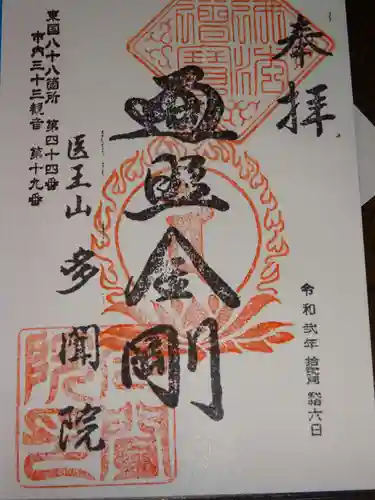 奉拝
遍照金剛
令和弐年 拾弐月 拾六日
東国八十八箇所 第四十四番
市内三十三観音 第十九番
医王山 多聞院